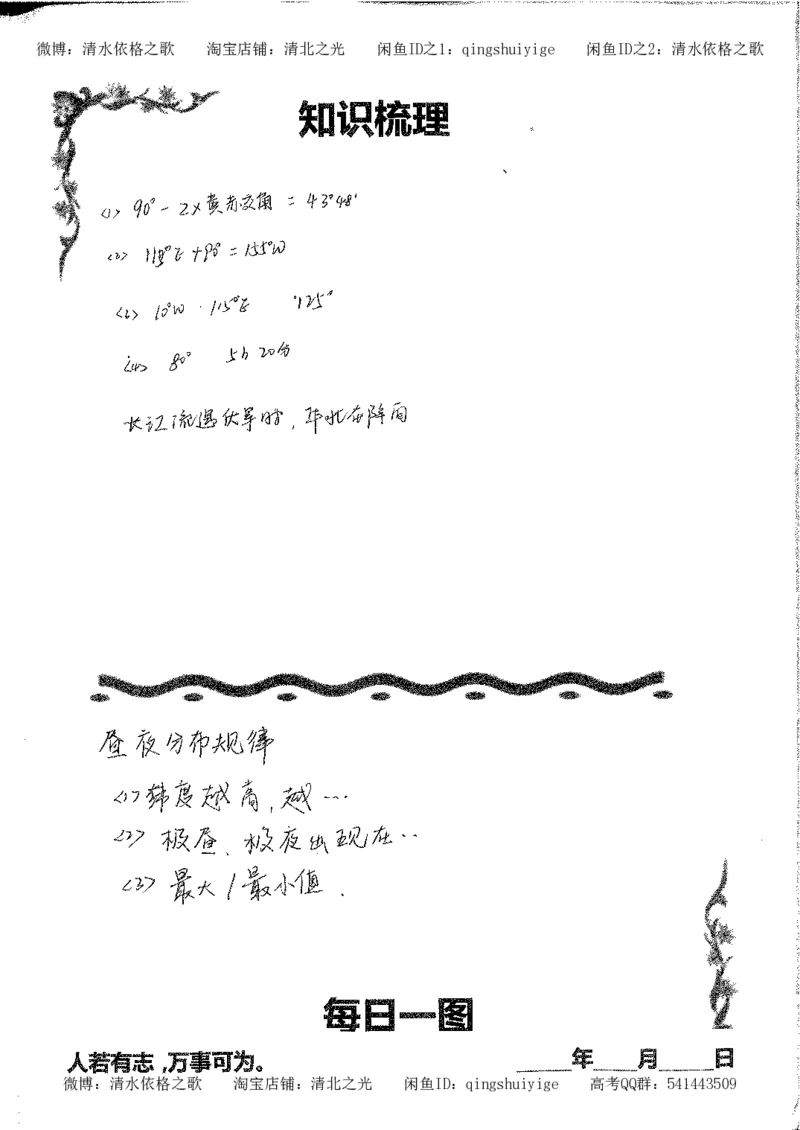 微博：清水依格之歌 淘宝店铺：清北之光 闲鱼ID之1：qingshuiyige 闲鱼ID之2：清水依格之歌
知识梳理
<1> 90° - 2×黄赤交角 = 43°48'
<2> 115°E + 90° = 155°W
<3> 10°W · 115°E "125°
<4> 80° 5h 20分
长江流遇伏旱时，华北在降雨
昼夜分布规律
<1> 纬度越高，越…
<2> 极昼、极夜出现在…
<3> 最大/最小值.
每日一图
人若有志,万事可为。 ____年____月____日
微博：清水依格之歌 淘宝店铺：清北之光 闲鱼ID：qingshuiyige 高考QQ群：541443509